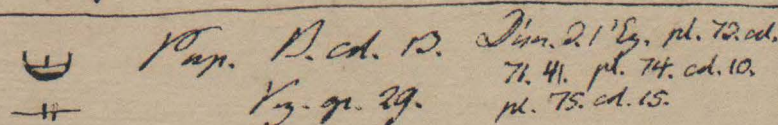 Pap. B. col. 13. Dèsc. d. l'Eg. pl. 72. col.
71. 41. pl. 74. col. 10.
gr. 29. pl. 75. col. 15.